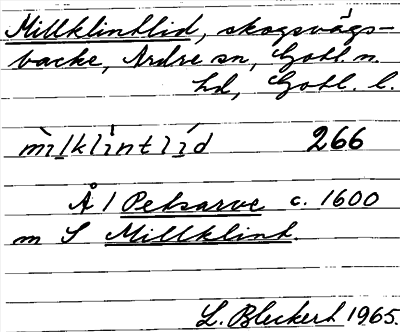 Millklintlid, skogsvägs-
backe, Ardre sn, Gotl. n.
hd, Gotl. l.
mìlklìntlíd 266
Å / Petsarve c. 1600
m S Millklint.
L. Bleckert 1965.